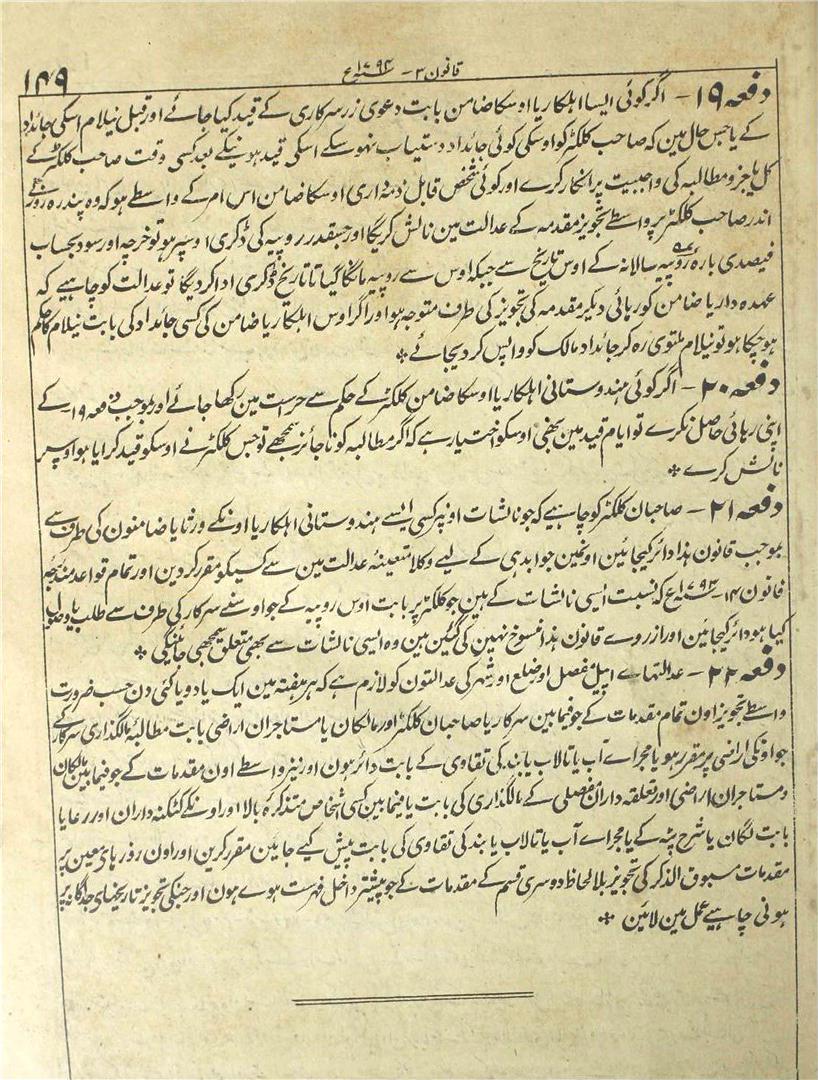 قانون ۳ - ۱۷۹۴ع
۱۴۹
دفعہ ۱۹ - اگر کوئی ایسا اہلکار یا اوسکا ضامن بابت دعوی زر سرکاری کے قید کیا جائے اور قبل نیلام اسکی جائداد
کے یا جس حال مین کہ صاحب کلکٹر کو اوسکی کوئی جائداد دستیاب نہوسکے اسکی قید ہونیکے بعد کسی وقت صاحب کلکٹر کے
کل یا جزو مطالبہ کی واجبیت پر انکار کرے اور کوئی شخص قابل ذمہ داری اوسکا ضامن اس امر کے واسطے ہو کہ وہ پندرہ روز کے
اندر صاحب کلکٹر پر واسطے تجویز مقدمہ کے عدالت مین نالش کریگا اور جسقدر روپیہ کی ڈگری اوسپر ہو تو خرچہ اور سود بحساب
فیصدی بارہ روپیہ سالانہ کے اوس تاریخ سے جبکہ اوس سے روپیہ مانگا گیا تا تاریخ ڈگری ادا کر دیگا تو عدالت کو چاہیے کہ
عہدہ دار یا ضامن کو رہائی دیکر مقدمہ کی تجویز کی طرف متوجہ ہو اور اگر اوس اہلکار یا ضامن کی کسی جائداد کی بابت نیلام کا حکم
ہو چکا ہو تو نیلام ملتوی رہ کر جائداد مالک کو واپس کر دیجائے *
دفعہ ۲۰ - اگر کوئی ہندوستانی اہلکار یا اوسکا ضامن کلکٹر کے حکم سے حراست مین رکھا جائے اور بموجب دفعہ ۱۹ - کے
اپنی رہائی حاصل نکرے تو ایام قید مین بھی اوسکو اختیار ہے کہ اگر مطالبہ کو ناجائز سمجھے تو جس کلکٹر نے اوسکو قید کرایا ہو اوسپر
نالش کرے *
دفعہ ۲۱ - صاحبان کلکٹر کو چاہیے کہ جو نالشات اونپر کسی ایسے ہندوستانی اہلکار یا اونکے ورثا یا ضامنون کی طرف سے
بموجب قانون ہذا دائر کیجائین اونمین جوابدہی کے لیے وکلا متعینہ عدالت مین سے کسیکو مقرر کر دین اور تمام قواعد مندرجہ
قانون ۱۴ - ۱۷۹۳ع کہ نسبت ایسی نالشات کے ہین جو کلکٹر پر بابت اوس روپیہ کے جو اوسنے سرکار کی طرف سے طلب یا وصول
کیا ہو دائر کیجائین اور ازروے قانون ہذا منسوخ نہین کی گئین ہین وہ ایسی نالشات سے بھی متعلق سمجھی جائینگی *
دفعہ ۲۲ - عدالتہاے اپیل مفصل اور ضلع اور شہر کی عدالتون کو لازم ہے کہ ہر ہفتہ مین ایک یا دو یا کئی دن حسب ضرورت
واسطے تجویز اون تمام مقدمات کے جو فیمابین سرکار یا صاحبان کلکٹر اور مالکان یا مستاجران اراضی بابت مطالبۂ مالگذاری سرکار کے
جو اونکی اراضی پر مقرر ہو یا مجراے آب یا تالاب یا بند کی تقاوی کے بابت دائر ہون اور نیز واسطے اون مقدمات کے جو فیمابین مالکان
و مستاجران اراضی اور تعلقہ داران مفصلی کے مالگذاری کی بابت یا فیمابین کسی اشخاص متذکرۂ بالا اور اونکے کٹکنہ داران اور رعایا
بابت لگان یا شرح پٹہ کے یا مجراے آب یا تالاب یا بند کی تقاوی کی بابت پیش کیے جائین مقرر کرین اور اون روزہای معین پر
مقدمات مسبوق الذکر کی تجویز بلا لحاظ دوسری قسم کے مقدمات کے جو پیشتر داخل فہرست ہوے ہون اور جنکی تجویز تاریخہای جداگانہ پر
ہونی چاہیے عمل مین لائین *